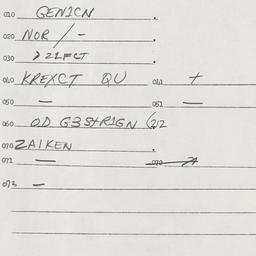 010 GENICN .
020 NOR / - .
030 > 21FCT .
040 KREXCT QU 041 +
050 — 051 —
060 OD G3StRIGN 212
070 ZAIKEN .
071 — 072
073 —